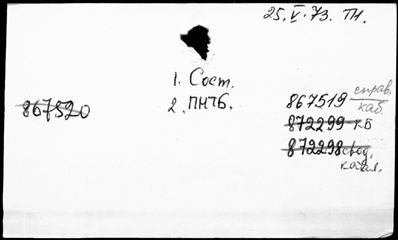 25.V.73. ТН.
1. Сост.
2. ПНТБ.
867520
867519 справ. каб.
872299 КБ
872298 свод.
катал.